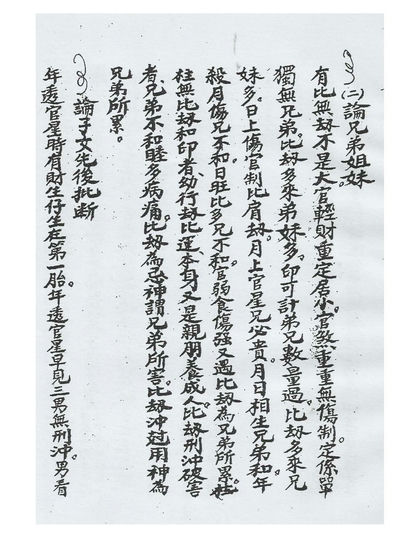 (二)論兄弟姐妹
有比無劫不是大。官輕財重定居小。官煞重重無傷制定係單
獨無兄弟。比劫多來弟妹多。印可計弟兄數量過。比劫多來兄
妹多。日上傷官制比肩劫。月上官星兄必貴。月日相生兄弟和。年
殺月傷兄不和。日旺比多兄不和。官弱食傷強又遇比劫為兄弟所累。
柱無比劫和印者。幼行劫比運。本身又是親朋養成人。比劫刑沖破害
者。兄弟不和睦多病痛。比劫為忌神謂兄弟所害。比劫沖尅用神為
兄弟所累。
論子女先後批断
年透官星時有財生仔生在第一胎。年透官星早見三男無刑沖。男看